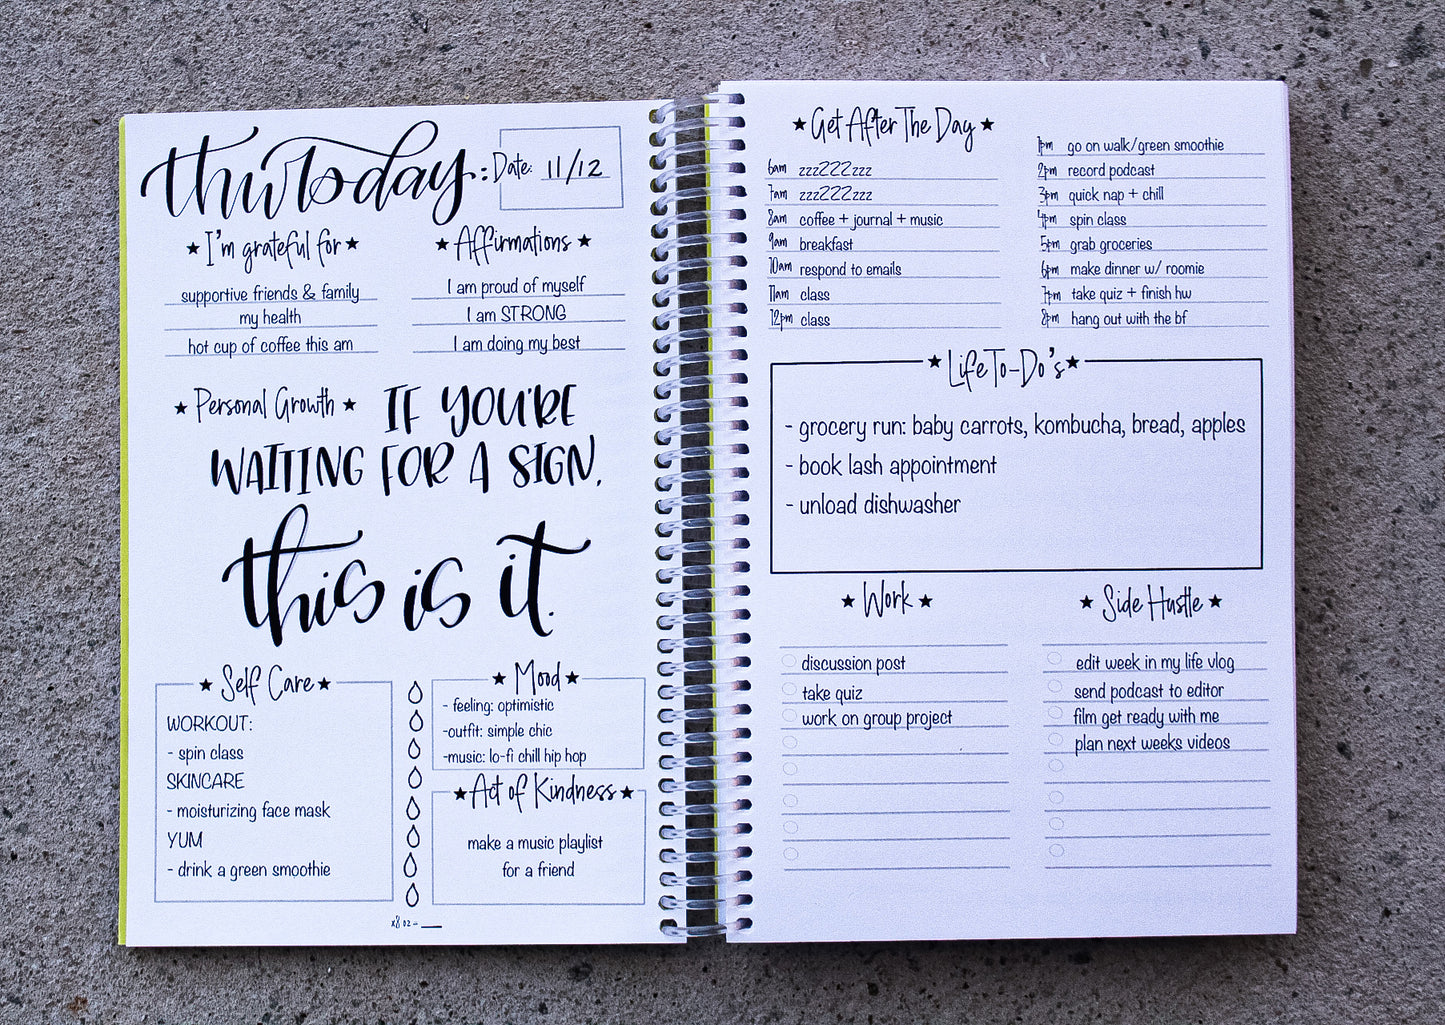 thursday: Date: 11/12
★ I'm grateful for ★
supportive friends & family
my health
hot cup of coffee this am
★ Affirmations ★
I am proud of myself
I am STRONG
I am doing my best
★ Personal Growth ★
IF YOU'RE
WAITING FOR A SIGN,
this is it.
★ Self Care ★
WORKOUT:
- spin class
SKINCARE
- moisturizing face mask
YUM
- drink a green smoothie
x8 oz = __
★ Mood ★
- feeling: optimistic
-outfit: simple chic
-music: lo-fi chill hip hop
★ Act of Kindness ★
make a music playlist
for a friend
★ Get After The Day ★
6am zzzZZZzzz
7am zzzZZZzzz
8am coffee + journal + music
9am breakfast
10am respond to emails
11am class
12pm class
1pm go on walk/green smoothie
2pm record podcast
3pm quick nap + chill
4pm spin class
5pm grab groceries
6pm make dinner w/ roomie
7pm take quiz + finish hw
8pm hang out with the bf
★ Life To-Do's ★
- grocery run: baby carrots, kombucha, bread, apples
- book lash appointment
- unload dishwasher
★ Work ★
discussion post
take quiz
work on group project
★ Side Hustle ★
edit week in my life vlog
send podcast to editor
film get ready with me
plan next weeks videos